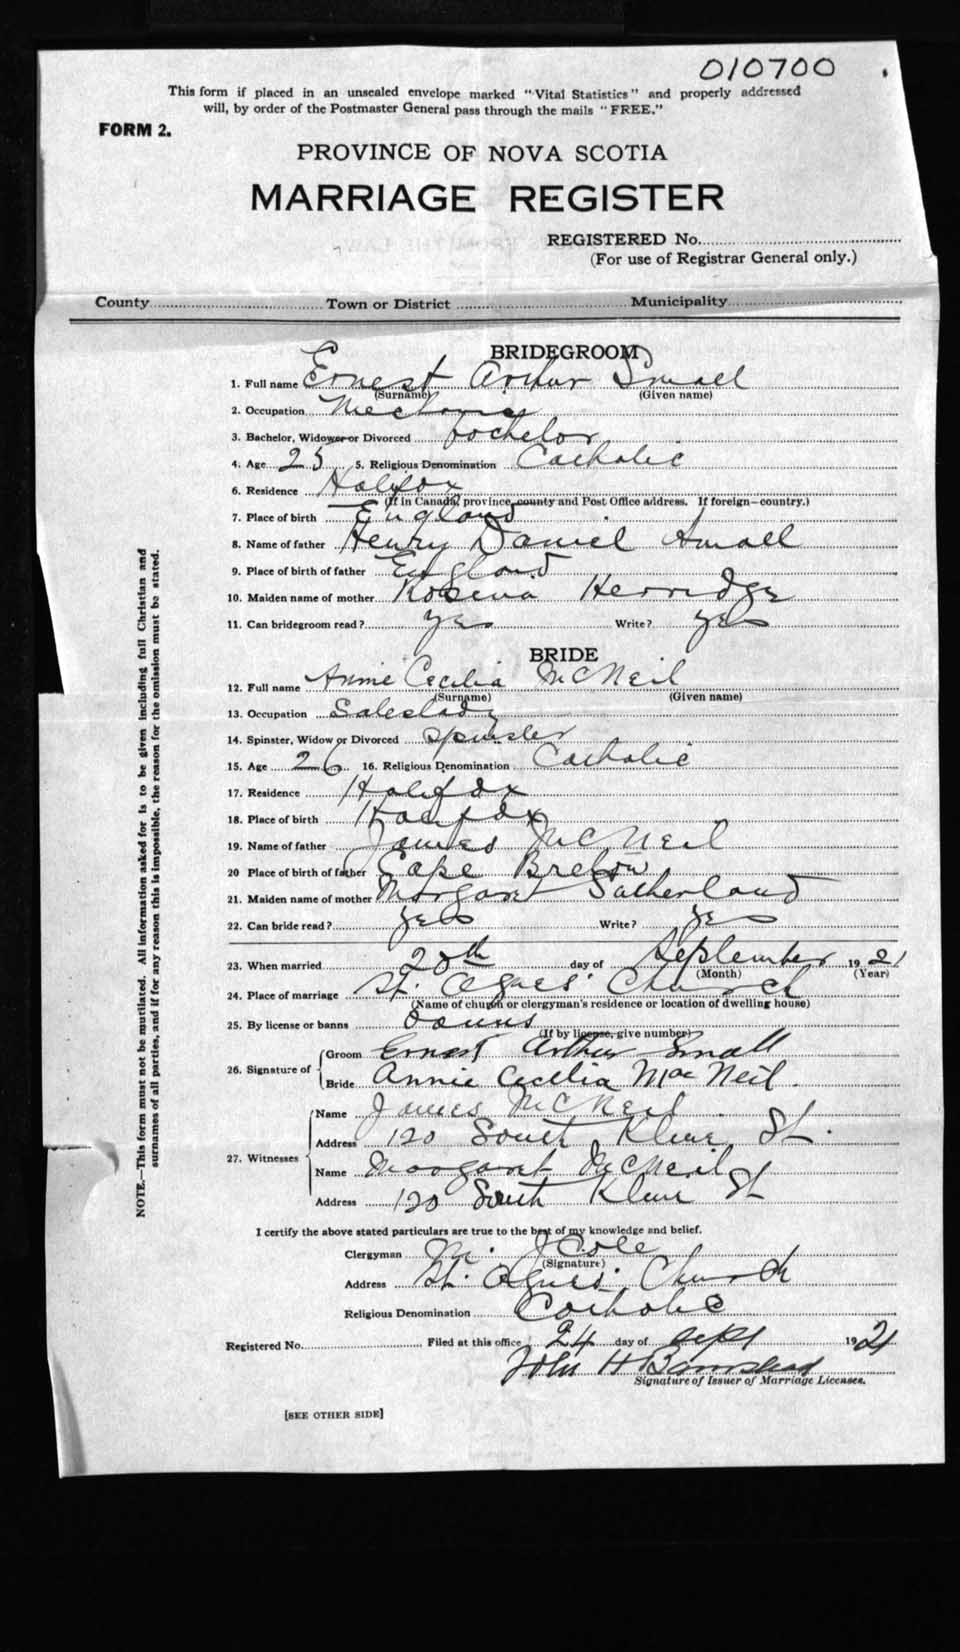 010700
This form if placed in an unsealed envelope marked "Vital Statistics" and properly addressed
will, by order of the Postmaster General pass through the mails "FREE."
FORM 2.
PROVINCE OF NOVA SCOTIA
MARRIAGE REGISTER
REGISTERED No.
(For use of Registrar General only.)
County Town or District Municipality
BRIDEGROOM
1. Full name Ernest Arthur Small
(Surname) (Given name)
2. Occupation Mechanic
3. Bachelor, Widower or Divorced bachelor
4. Age 25 5. Religious Denomination Catholic
6. Residence Halifax
(If in Canada, province, county and Post Office address. If foreign—country.)
7. Place of birth England
8. Name of father Henry Daniel Small
9. Place of birth of father England
10. Maiden name of mother Rosena Herridge
11. Can bridegroom read? yes Write? yes
BRIDE
12. Full name Annie Cecilia McNeil
(Surname) (Given name)
13. Occupation Saleslady
14. Spinster, Widow or Divorced Spinster
15. Age 26 16. Religious Denomination Catholic
17. Residence Halifax
18. Place of birth Halifax
19. Name of father James McNeil
20 Place of birth of father Cape Breton
21. Maiden name of mother Margaret Sutherland
22. Can bride read? yes Write? yes
23. When married 20th day of September 1921
(Month) (Year)
24. Place of marriage St. Agnes' Church
(Name of church or clergyman's residence or location of dwelling house)
25. By license or banns banns
(If by license, give number)
26. Signature of
Groom Ernest Arthur Small
Bride Annie Cecilia MacNeil.
27. Witnesses
Name James McNeil
Address 120 South Kline St.
Name Margaret McNeil
Address 120 South Kline St
I certify the above stated particulars are true to the best of my knowledge and belief.
Clergyman Cole
(Signature)
Address St. Agnes' Church
Religious Denomination Catholic
Registered No. Filed at this office 24 day of Sept 1921
John H
Signature of Issuer of Marriage Licenses.
[SEE OTHER SIDE]
NOTE.—This form must not be mutilated. All information asked for is to be given including full Christian and
surnames of all parties, and if for any reason this is impossible, the reason for the omission must be stated.